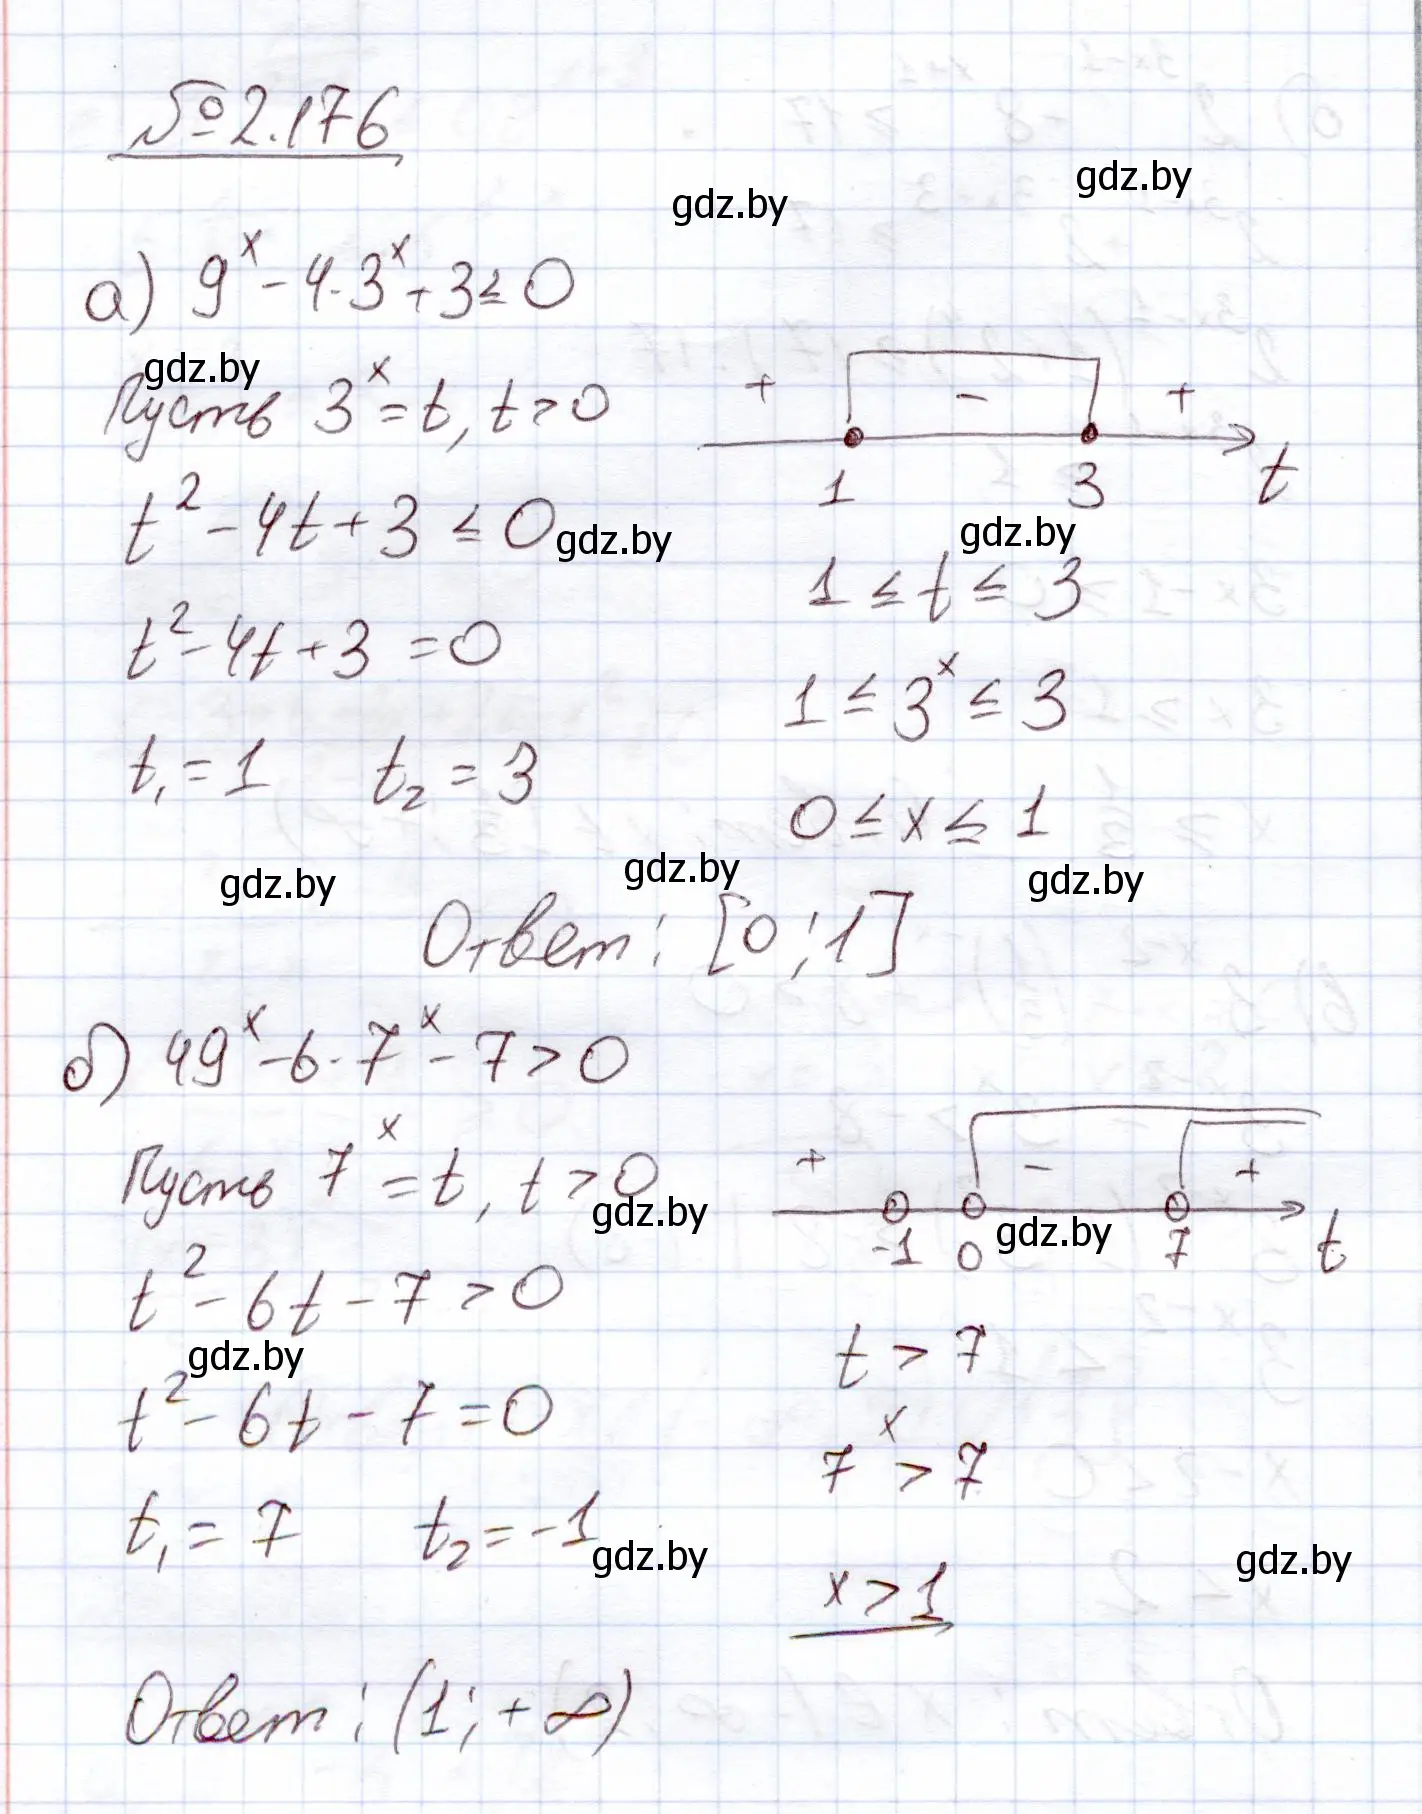 №2.176
gdz.by
gdz.by
а) 9ˣ - 4·3ˣ + 3 ≤ 0
gdz.by
Пусть 3ˣ = t, t > 0
+ - +
1 3 t
t² - 4t + 3 ≤ 0
gdz.by
gdz.by
t² - 4t + 3 = 0
t₁ = 1 t₂ = 3
1 ≤ t ≤ 3
1 ≤ 3ˣ ≤ 3
0 ≤ x ≤ 1
gdz.by
gdz.by
gdz.by
Ответ: [0; 1]
б) 49ˣ - 6·7ˣ - 7 > 0
Пусть 7ˣ = t, t > 0
gdz.by
+ - +
-1 0 7 t
gdz.by
t² - 6t - 7 > 0
gdz.by
t² - 6t - 7 = 0
t₁ = 7 t₂ = -1
gdz.by
t > 7
7ˣ > 7
x > 1
gdz.by
Ответ: (1; +∞)